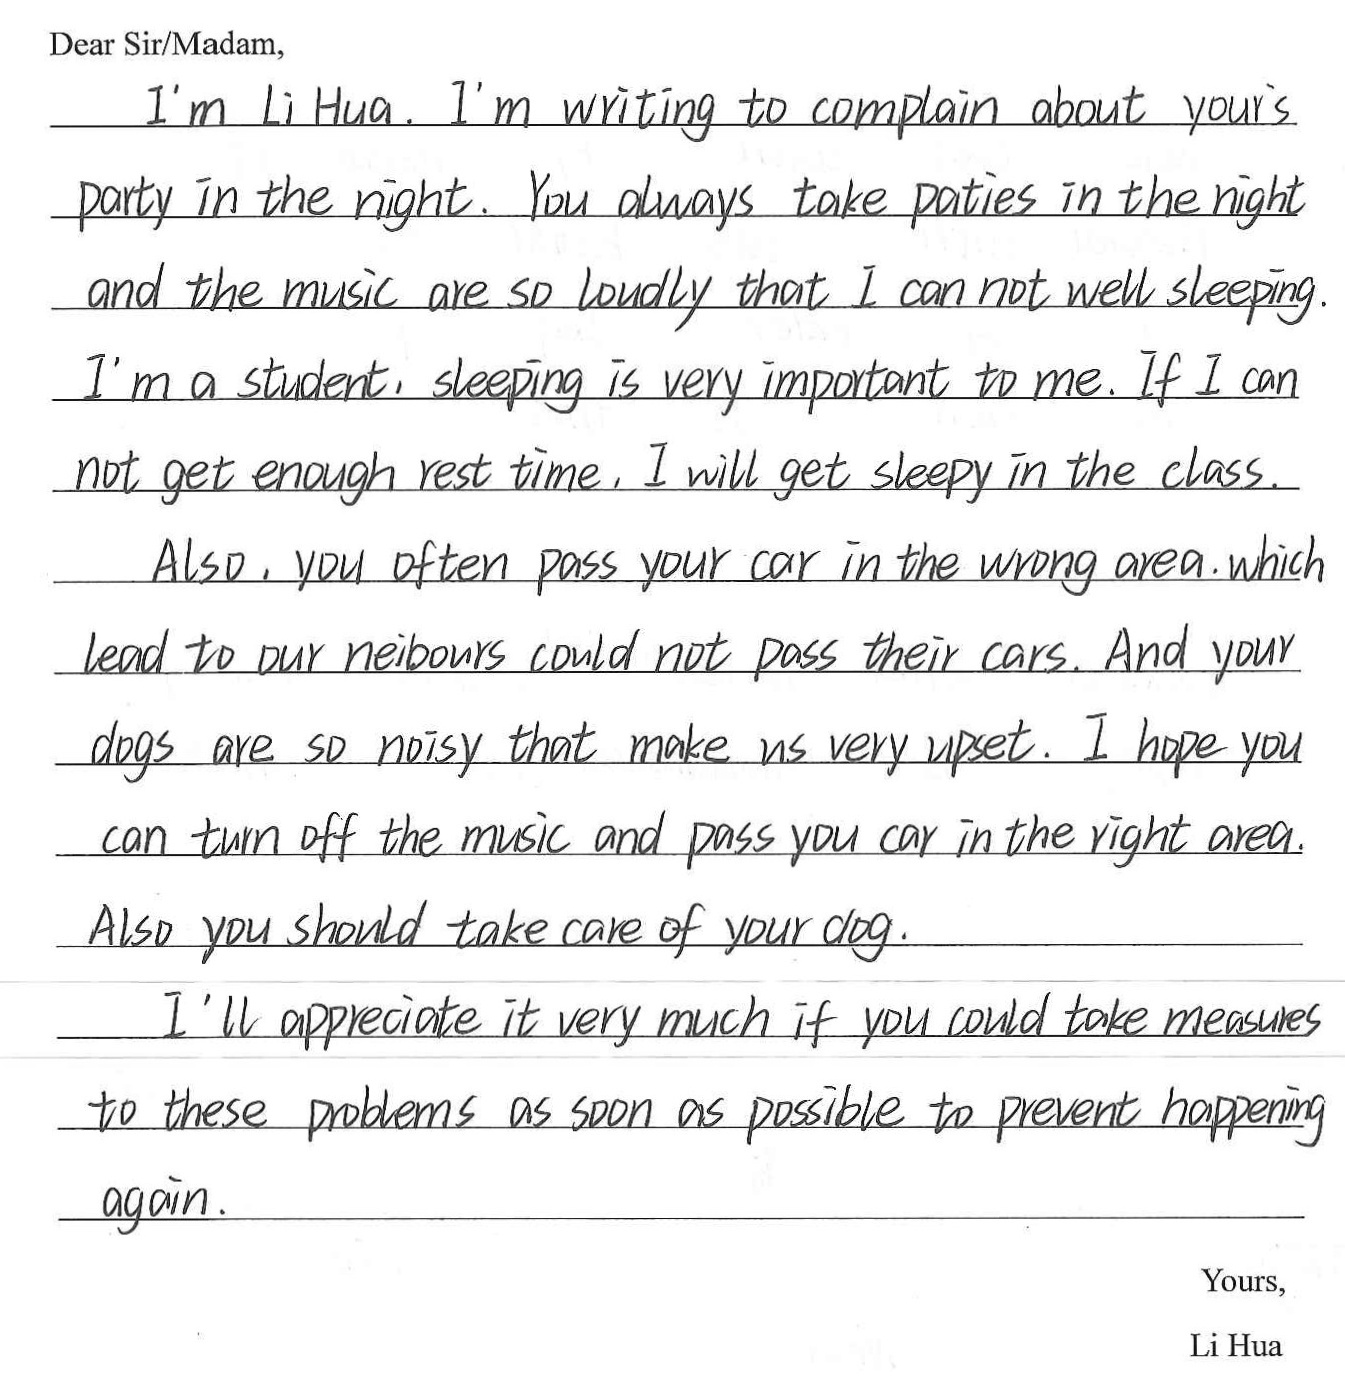 Dear Sir/Madam,
I'm Li Hua. I'm writing to complain about your's
party in the night. You always take paties in the night
and the music are so loudly that I can not well sleeping.
I'm a student, sleeping is very important to me. If I can
not get enough rest time, I will get sleepy in the class.
Also, you often pass your car in the wrong area. which
lead to our neibours could not pass their cars. And your
dogs are so noisy that make us very upset. I hope you
can turn off the music and pass you car in the right area.
Also you should take care of your dog.
I'll appreciate it very much if you could take measures
to these problems as soon as possible to prevent happening
again.
Yours,
Li Hua